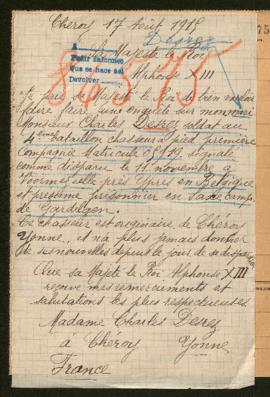 Chéroy 17 Août 1918
Desrez
A
Sa Majesté le Roi
Pedir informes
que se hace así
Devolver
Alphonse XIII
Je prie sa Majesté le Roi de bien vouloir
faire faire une enquête sur mon mari
Monsieur Charles Desrez soldat au
4ème bataillon chasseur à pied première
compagnie Matricule signalé
comme disparu le 11 novembre à
près Ypres en Belgique
et présumé prisonnier en Saxe camp
de Gardelgen.
Ce chasseur est originaire de Chéroy
Yonne, et n'a plus jamais donné
de ses nouvelles depuis le jour de sa dispa
Que sa Majesté le Roi Alphonse XIII
reçoive mes remerciements et
salutations les plus respectueuses
Madame Charles Desrez
à Chéroy Yonne
France